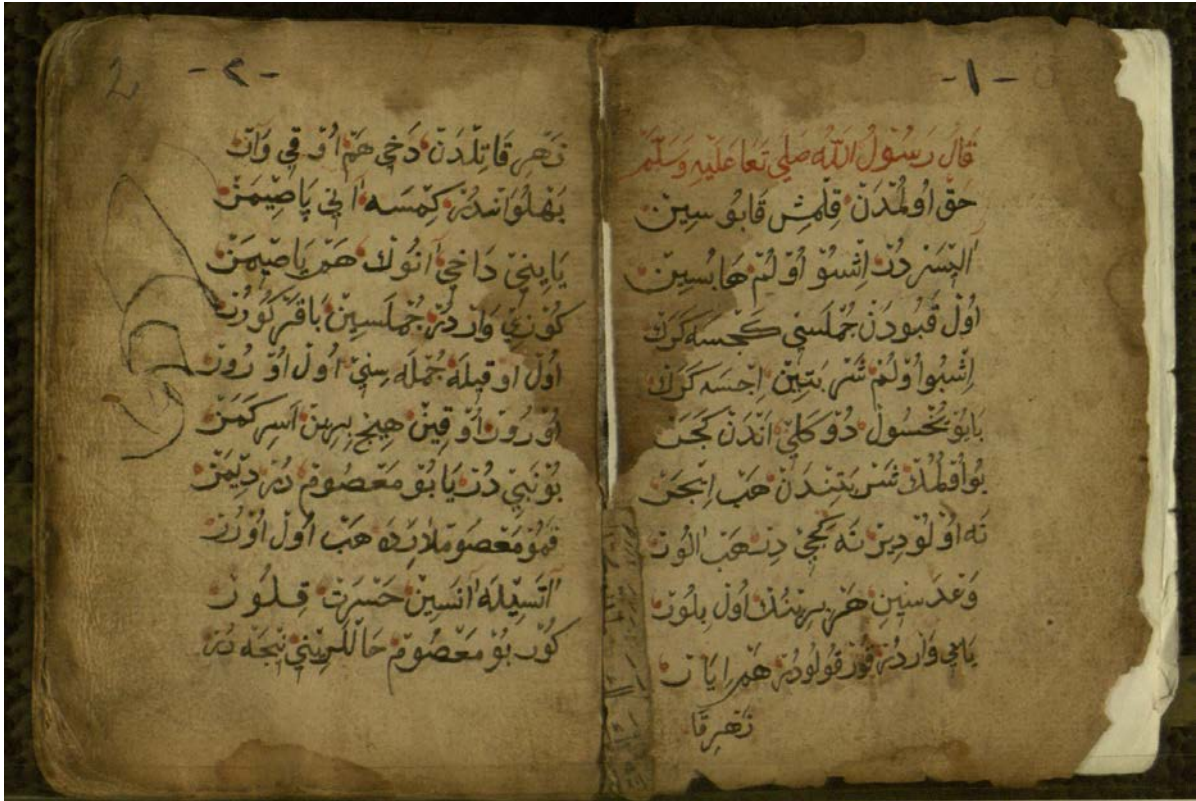 -١-
قَالَ رَسُولُ اللّٰه صَلي تَعَا عَلَيْهِ وَسَلَّمْ
حَق اُولُمْدَنْ قِلْمِشْ قَابُو سِينْ
اُول قَبُودَنْ جُمْلَسِي كَچْسَه كَرَكْ
اِشْبُو اُولُمْ شَرْبَتِينْ اِچسَه كَرَكْ
نَه اُولُودِرْ نَه كچِي دِرْ هَبْ اَلُورْ
وَعْدَسِنِين هَرْ بِرِينُكْ اُولْ بِلُورْ
يَايِي وَارْدُرْ قُورْقُولُودُرْ هَمْ اِيَا رْ
زَهِرِ قَا
-٢-
زَهِرِ قَاتِلْدَنْ دَخِي هَمْ اُوقِي وَارْ
پَهْلَوَانْدُرْ كِمْسَه اَنِي پَاصِيمَزْ
يَايِنِي دَاخِي اَنُوكْ هَمْ يَاصِيمَزْ
كُوزِي وَارْدُرْ جُمْلَسِينْ بَاقَرْ كُورُرْ
اُولْ اوقِيلَه جُمْلَه سِنِي اُولْ اُورُورْ
اُورُورْ اُوقِينْ هِيچْ بِرِينْ اَسِرْكَمَزْ
بُو نَبِي دُرْ يَا بُو مَعْصُومْ دُرْ دِيمَزْ
قَمُو مَعْصُوملَارِدَه هَبْ اُولْ اُورُرْ
اَتَسِيلَه اَنَسِينْ حَسْرَتْ قِلُورْ
كُورْ بُو مَعْصُومْ حَاللَرِينِي نِيجَه دُرْ